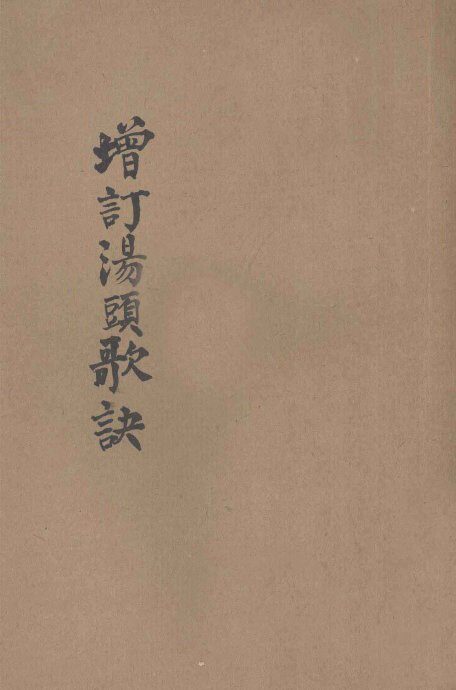 增訂湯頭歌訣